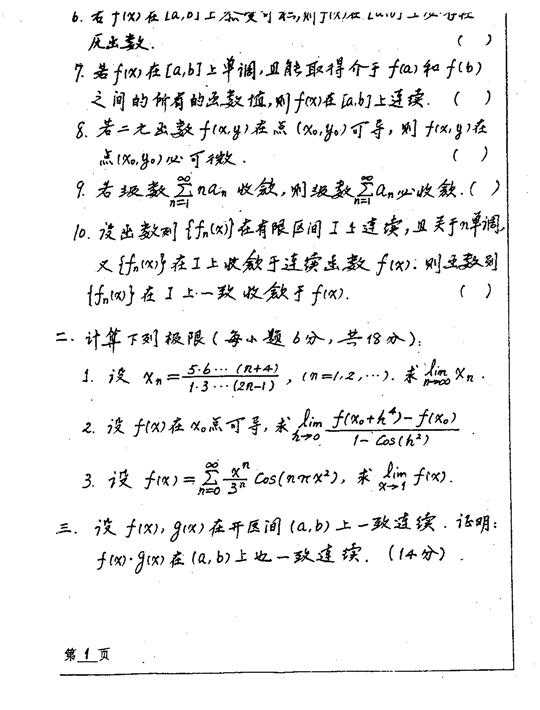 6. 若f(x)在[a,b]上
原函数. ( )
7. 若f(x)在[a,b]上单调,且能取得介于f(a)和f(b)
之间的所有的函数值,则f(x)在[a,b]上连续. ( )
8. 若二元函数f(x,y)在点(x₀,y₀)可导,则f(x,y)在
点(x₀,y₀)必可微. ( )
9. 若级数∑_{n=1}^{∞} na_n收敛,则级数∑_{n=1}^{∞} a_n必收敛.( )
10. 设函数列{f_n(x)}在有限区间I上连续,且关于n单调,
又{f_n(x)}在I上收敛于连续函数f(x).则函数列
{f_n(x)}在I上一致收敛于f(x). ( )
二. 计算下列极限(每小题6分,共18分):
1. 设 x_n = 5·6···(n+4) / 1·3···(2n-1) , (n=1,2,···). 求 lim_{n→∞} x_n .
2. 设f(x)在x₀点可导,求 lim_{h→0} f(x₀+h⁴)-f(x₀) / 1-Cos(h²)
3. 设 f(x) = ∑_{n=0}^{∞} xⁿ/3ⁿ Cos(nπx²), 求 lim_{x→1} f(x).
三. 设f(x), g(x)在开区间(a,b)上一致连续. 证明:
f(x)·g(x)在(a,b)上也一致连续. (14分).
第 1 页